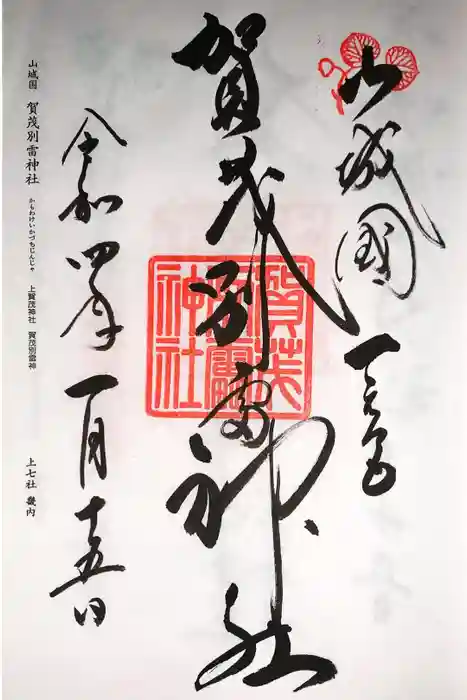 山城國一之宮
賀茂別雷神社
賀茂別雷神社
令和四年一月十五日
山城国 賀茂別雷神社 かもわけいかづちじんじゃ 上賀茂神社 賀茂別雷神 上七社 畿内